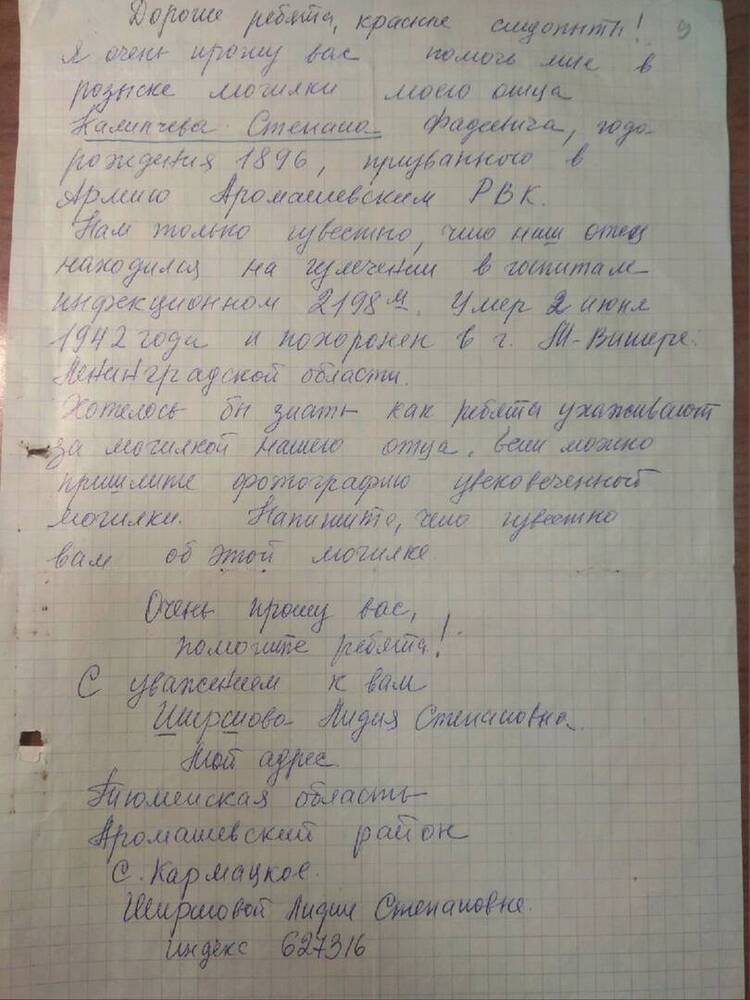 Дорогие ребята, красные следопыты! 9
Я очень прошу вас помочь мне в
розыске могилки моего отца
Степана Фадеевича, года
рождения 1896, призванного в
Армию Аромашевским РВК.
Нам только известно, что наш отец
находился на излечении в госпитале
инфекционном 2198м. Умер 2 июня
1942 года и похоронен в г. М-Вишере.
Ленинградской области.
Хотелось бы знать как ребята ухаживают
за могилкой нашего отца, если можно
пришлите фотографию увековеченной
могилки. Напишите, что известно
вам об этой могилке.
Очень прошу вас,
помогите ребята!
С уважением к вам
Ширшова Лидия Степановна.
Мой адрес.
Тюменская область
Аромашевский район
С. Кармацкое.
Ширшовой Лидии Степановне.
Индекс 627316